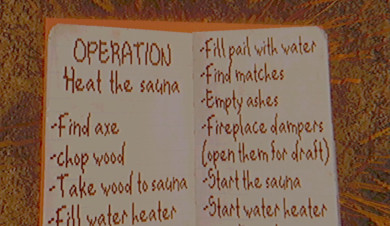 OPERATION
Heat the sauna
-Find axe
-chop wood
-Take wood to sauna
-Fill water heater
-Fill pail with water
-Find matches
-Empty ashes
-Fireplace dampers
(open them for draft)
-Start the sauna
-Start water heater